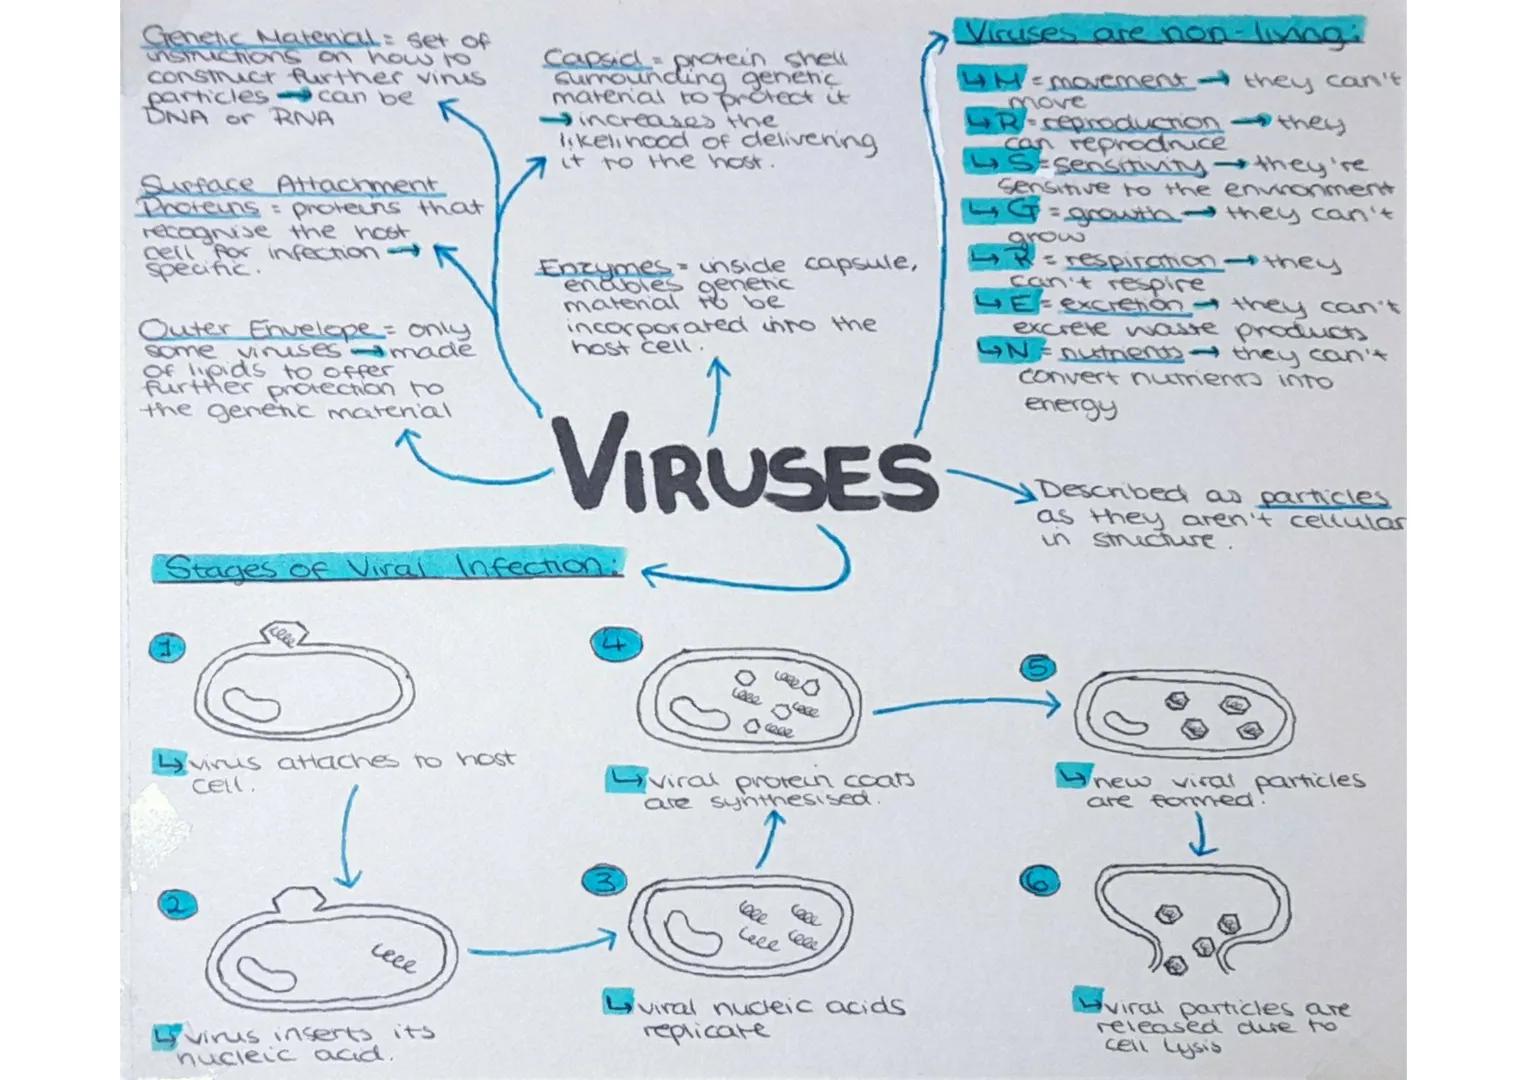 Genetic Material = set of
instructions on how to
construct further virus
particles → can be
DNA or RNA
Surface Attachment
Proteins = proteins that
recognise the host
cell for infection →
specific.
Outer Envelope = only
some viruses → made
of lipids to offer
further protection to
the genetic material
Capsid = protein shell
surrounding genetic
material to protect it
→ increases the
likelihood of delivering
it to the host.
Enzymes = inside capsule,
enables genetic
material to be
incorporated into the
host cell.
Viruses are non-living:
↳ M = movement → they can't
move
↳ R = reproduction → they
can reprodnuce
↳ S = sensitivity → they're
sensitive to the environment
↳ G = growth → they can't
grow
↳ R = respiration → they
can't respire
↳ E = excretion → they can't
excrete waste products
↳ N = nutrients → they can't
convert nutrients into
energy
VIRUSES
Described as particles
as they aren't cellular
in structure.
Stages of Viral Infection:
1
↳ virus attaches to host
cell.
2
↳ virus inserts its
nucleic acid.
3
↳ viral nucleic acids
replicate
4
↳ viral protein coats
are synthesised.
5
↳ new viral particles
are formed.
6
↳ viral particles are
released due to
cell lysis